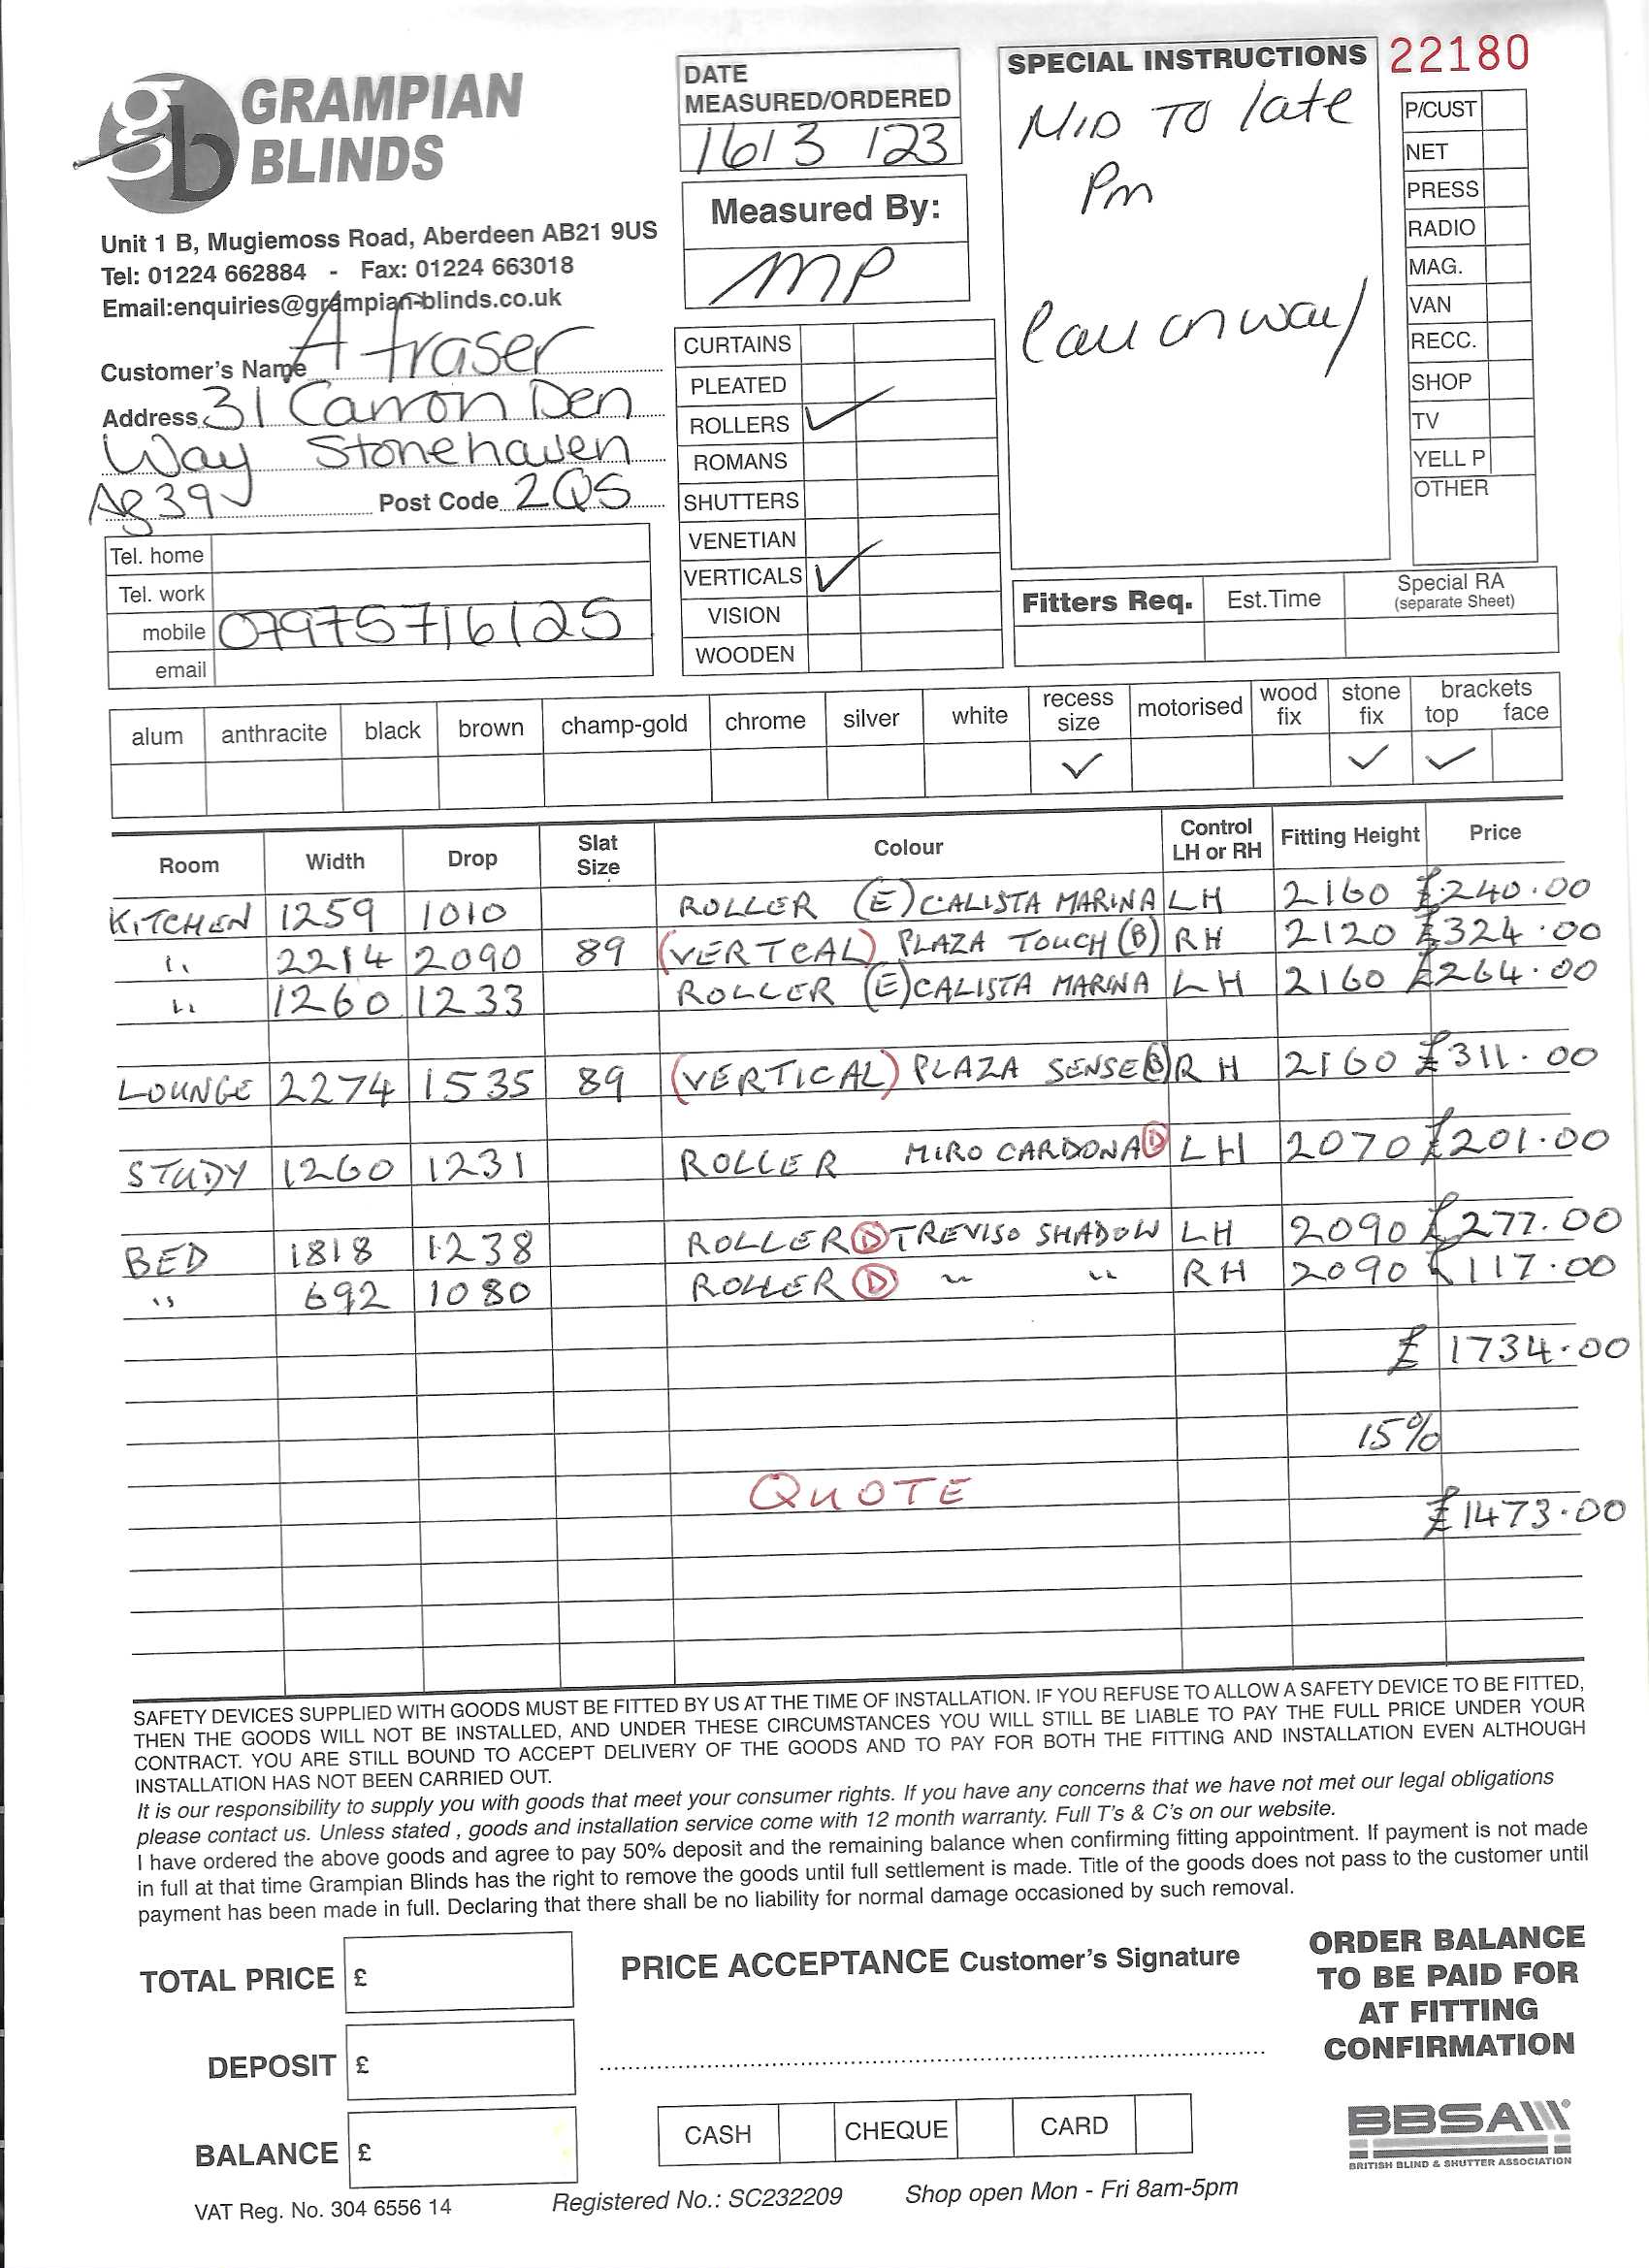 GRAMPIAN BLINDS
Unit 1 B, Mugiemoss Road, Aberdeen AB21 9US
Tel: 01224 662884 - Fax: 01224 663018
Email:enquiries@grampian-blinds.co.uk
Customer's Name A Fraser
Address 31 Carron Den
Way Stonehaven
AB39 Post Code 2QS
Tel. home
Tel. work
mobile 07975716125
email
DATE
MEASURED/ORDERED
16/3/23
Measured By:
MP
CURTAINS
PLEATED
ROLLERS ✓
ROMANS
SHUTTERS
VENETIAN
VERTICALS ✓
VISION
WOODEN
SPECIAL INSTRUCTIONS
MID TO late
Pm
Call on way
22180
P/CUST
NET
PRESS
RADIO
MAG.
VAN
RECC.
SHOP
TV
YELL P
OTHER
Fitters Req. Est.Time Special RA
(separate Sheet)
alum anthracite black brown champ-gold chrome silver white recess size motorised wood fix stone fix brackets top face
✓ ✓ ✓
Room Width Drop Slat Size Colour Control LH or RH Fitting Height Price
KITCHEN 1259 1010 ROLLER (E) CALISTA MARINA LH 2160 £240.00
" 2214 2090 89 (VERTCAL) PLAZA TOUCH (B) RH 2120 £324.00
" 1260 1233 ROLLER (E) CALISTA MARINA LH 2160 £264.00
LOUNGE 2274 1535 89 (VERTICAL) PLAZA SENSE (B) RH 2160 £311.00
STUDY 1260 1231 ROLLER MIRO CARDONA (D) LH 2070 £201.00
BED 1818 1238 ROLLER (D) TREVISO SHADOW LH 2090 £277.00
" 692 1080 ROLLER (D) " " RH 2090 £117.00
£ 1734.00
15%
QUOTE
£1473.00
SAFETY DEVICES SUPPLIED WITH GOODS MUST BE FITTED BY US AT THE TIME OF INSTALLATION. IF YOU REFUSE TO ALLOW A SAFETY DEVICE TO BE FITTED,
THEN THE GOODS WILL NOT BE INSTALLED, AND UNDER THESE CIRCUMSTANCES YOU WILL STILL BE LIABLE TO PAY THE FULL PRICE UNDER YOUR
CONTRACT. YOU ARE STILL BOUND TO ACCEPT DELIVERY OF THE GOODS AND TO PAY FOR BOTH THE FITTING AND INSTALLATION EVEN ALTHOUGH
INSTALLATION HAS NOT BEEN CARRIED OUT.
It is our responsibility to supply you with goods that meet your consumer rights. If you have any concerns that we have not met our legal obligations
please contact us. Unless stated , goods and installation service come with 12 month warranty. Full T's & C's on our website.
I have ordered the above goods and agree to pay 50% deposit and the remaining balance when confirming fitting appointment. If payment is not made
in full at that time Grampian Blinds has the right to remove the goods until full settlement is made. Title of the goods does not pass to the customer until
payment has been made in full. Declaring that there shall be no liability for normal damage occasioned by such removal.
TOTAL PRICE £
DEPOSIT £
BALANCE £
PRICE ACCEPTANCE Customer's Signature
CASH CHEQUE CARD
ORDER BALANCE
TO BE PAID FOR
AT FITTING
CONFIRMATION
BBSA
BRITISH BLIND & SHUTTER ASSOCIATION
VAT Reg. No. 304 6556 14 Registered No.: SC232209 Shop open Mon - Fri 8am-5pm